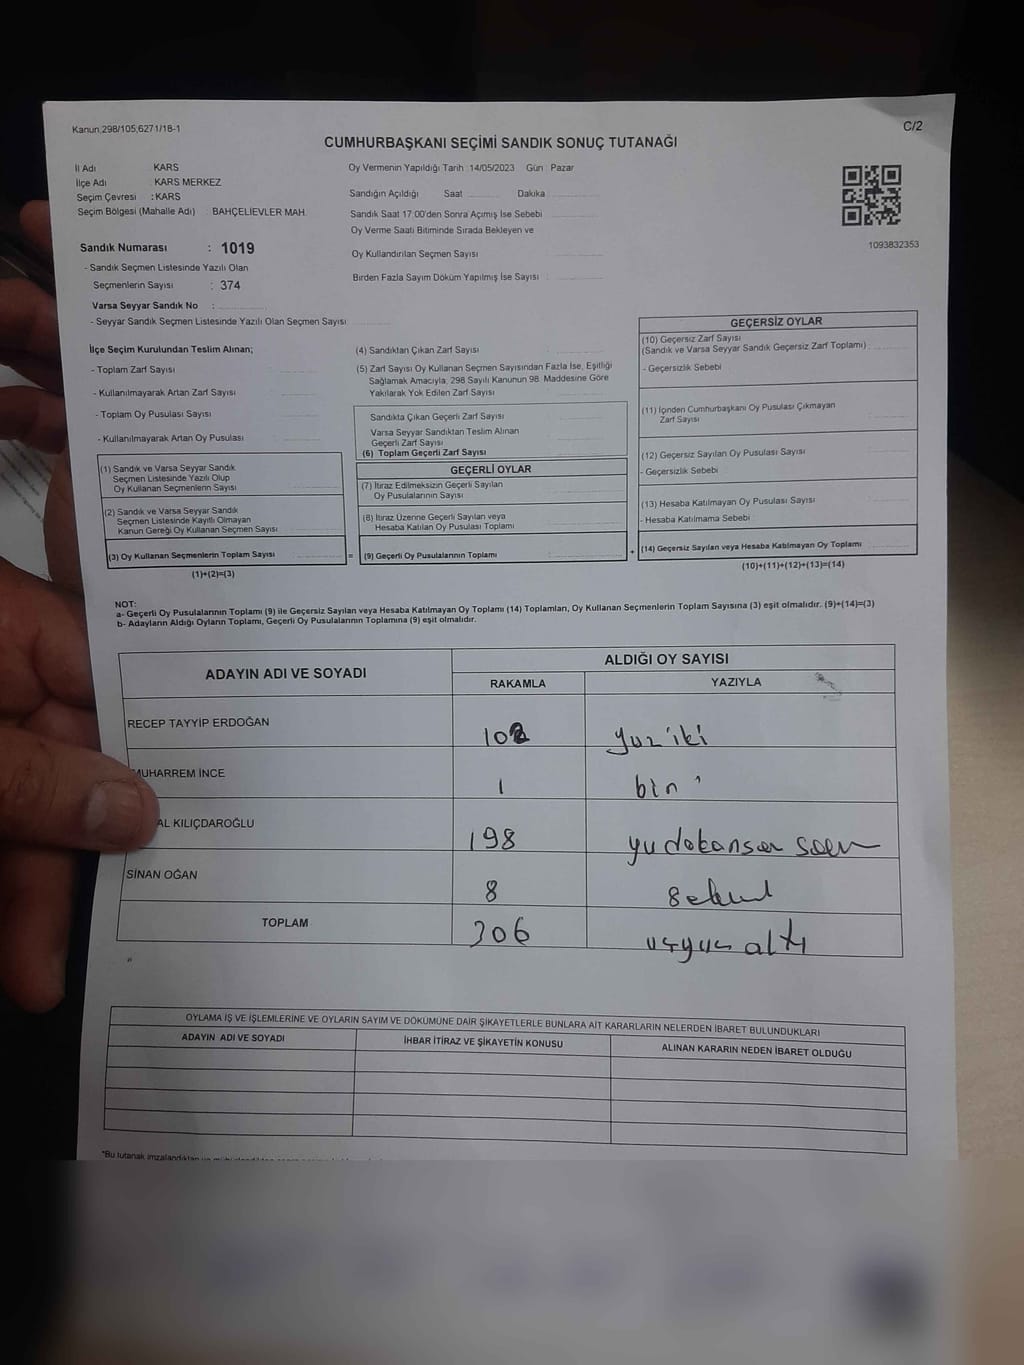 Kanun;298/105;6271/18-1
C/2
CUMHURBAŞKANI SEÇİMİ SANDIK SONUÇ TUTANAĞI
İl Adı : KARS
İlçe Adı : KARS MERKEZ
Seçim Çevresi : KARS
Seçim Bölgesi (Mahalle Adı) : BAHÇELİEVLER MAH.
Oy Vermenin Yapıldığı Tarih :14/05/2023 Gün : Pazar
Sandığın Açıldığı Saat Dakika
Sandık Saat 17:00'den Sonra Açımış İse Sebebi
Oy Verme Saati Bitiminde Sırada Bekleyen ve
Oy Kullandırılan Seçmen Sayısı :
Birden Fazla Sayım Döküm Yapılmış İse Sayısı :
1093832353
Sandık Numarası : 1019
- Sandık Seçmen Listesinde Yazılı Olan
Seçmenlerin Sayısı : 374
Varsa Seyyar Sandık No :
- Seyyar Sandık Seçmen Listesinde Yazılı Olan Seçmen Sayısı
İlçe Seçim Kurulundan Teslim Alınan;
- Toplam Zarf Sayısı
- Kullanılmayarak Artan Zarf Sayısı
- Toplam Oy Pusulası Sayısı
- Kullanılmayarak Artan Oy Pusulası
(1) Sandık ve Varsa Seyyar Sandık
Seçmen Listesinde Yazılı Olup
Oy Kullanan Seçmenlerin Sayısı
(2) Sandık ve Varsa Seyyar Sandık
Seçmen Listesinde Kayıtlı Olmayan
Kanun Gereği Oy Kullanan Seçmen Sayısı
(3) Oy Kullanan Seçmenlerin Toplam Sayısı
(1)+(2)=(3)
=
(4) Sandıktan Çıkan Zarf Sayısı
(5) Zarf Sayısı Oy Kullanan Seçmen Sayısından Fazla İse, Eşitliği
Sağlamak Amacıyla, 298 Sayılı Kanunun 98. Maddesine Göre
Yakılarak Yok Edilen Zarf Sayısı
Sandıkta Çıkan Geçerli Zarf Sayısı
Varsa Seyyar Sandıktan Teslim Alınan
Geçerli Zarf Sayısı
(6) Toplam Geçerli Zarf Sayısı
GEÇERLİ OYLAR
(7) İtiraz Edilmeksizin Geçerli Sayılan
Oy Pusulalarının Sayısı
(8) İtiraz Üzerine Geçerli Sayılan veya
Hesaba Katılan Oy Pusulası Toplamı
(9) Geçerli Oy Pusulalarının Toplamı
+
GEÇERSİZ OYLAR
(10) Geçersiz Zarf Sayısı
(Sandık ve Varsa Seyyar Sandık Geçersiz Zarf Toplamı)
- Geçersizlik Sebebi
(11) İçinden Cumhurbaşkanı Oy Pusulası Çıkmayan
Zarf Sayısı
(12) Geçersiz Sayılan Oy Pusulası Sayısı
- Geçersizlik Sebebi
(13) Hesaba Katılmayan Oy Pusulası Sayısı
- Hesaba Katılmama Sebebi
(14) Geçersiz Sayılan veya Hesaba Katılmayan Oy Toplamı
(10)+(11)+(12)+(13)=(14)
NOT:
a- Geçerli Oy Pusulalarının Toplamı (9) ile Geçersiz Sayılan veya Hesaba Katılmayan Oy Toplamı (14) Toplamları, Oy Kullanan Seçmenlerin Toplam Sayısına (3) eşit olmalıdır. (9)+(14)=(3)
b- Adayların Aldığı Oyların Toplamı, Geçerli Oy Pusulalarının Toplamına (9) eşit olmalıdır.
ADAYIN ADI VE SOYADI
ALDIĞI OY SAYISI
RAKAMLA YAZIYLA
RECEP TAYYİP ERDOĞAN 102 yüz iki
MUHARREM İNCE 1 bir
AL KILIÇDAROĞLU 198
SİNAN OĞAN 8 Sekiz
TOPLAM 306 üçyüz altı
OYLAMA İŞ VE İŞLEMLERİNE VE OYLARIN SAYIM VE DÖKÜMÜNE DAİR ŞİKAYETLERLE BUNLARA AİT KARARLARIN NELERDEN İBARET BULUNDUKLARI
ADAYIN ADI VE SOYADI İHBAR İTİRAZ VE ŞİKAYETİN KONUSU ALINAN KARARIN NEDEN İBARET OLDUĞU
*Bu tutanak imzalandıktan